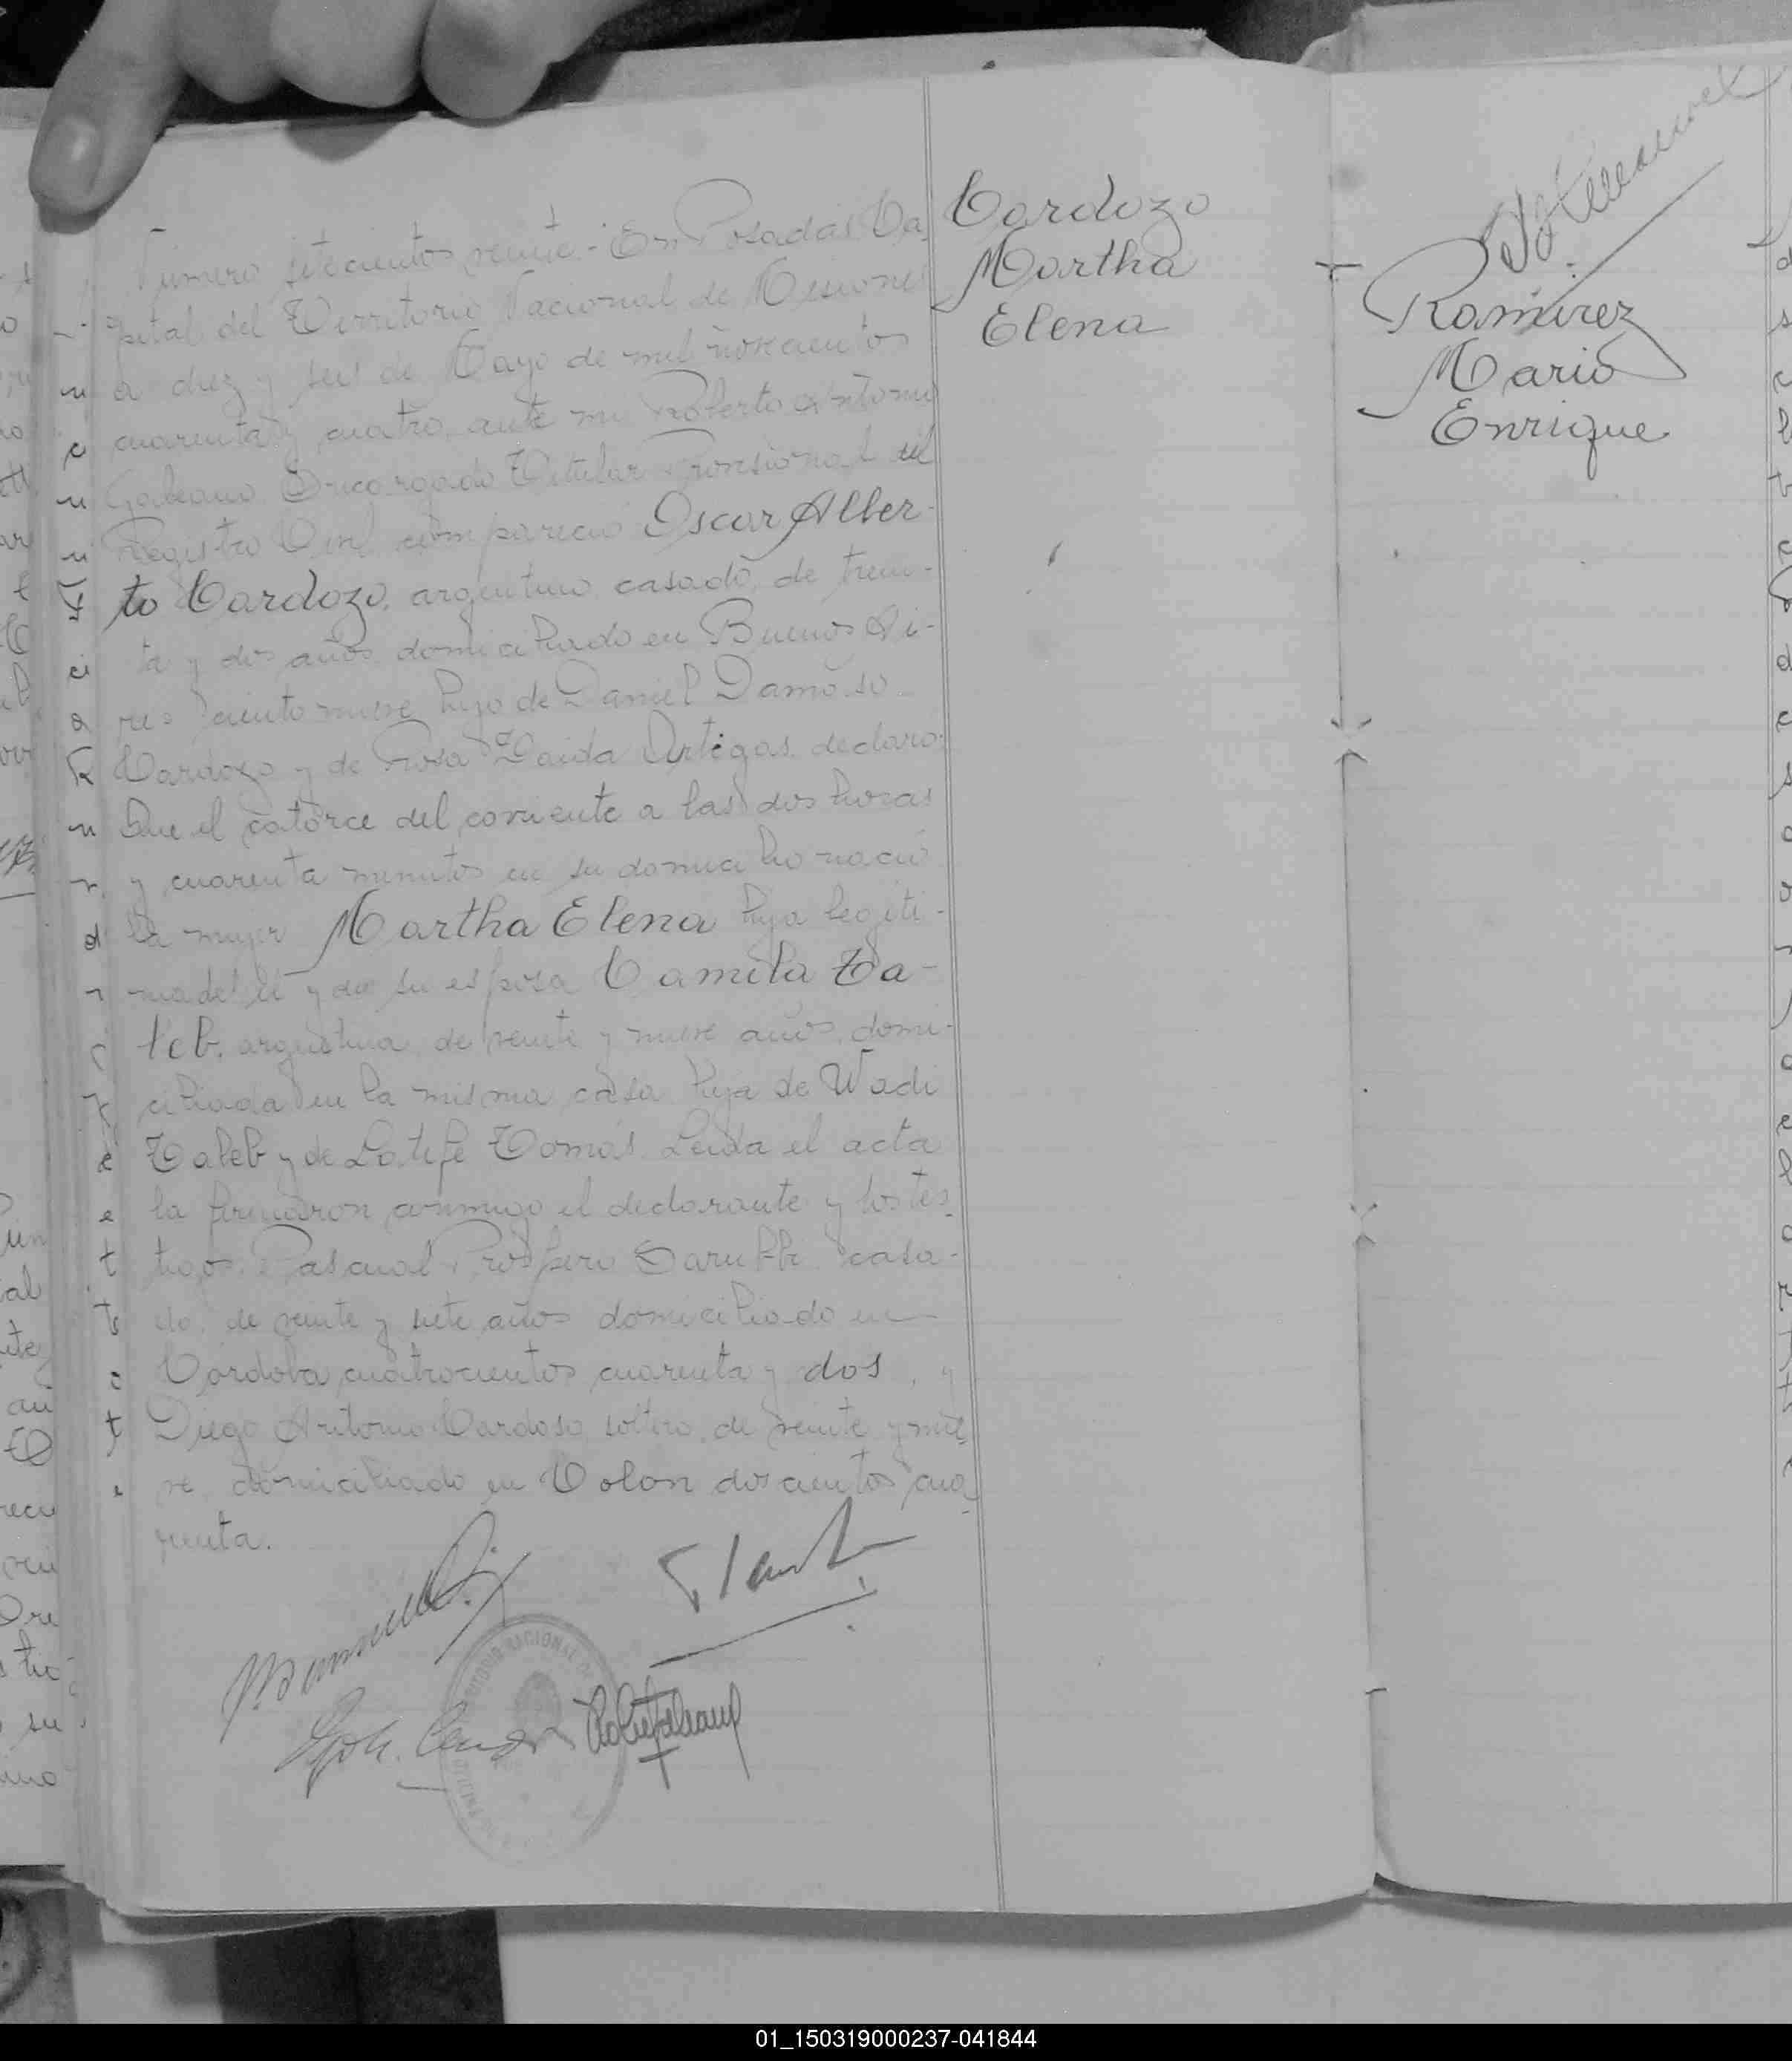 Número setecientos veinte.- En Posadas Ca-
pital del Territorio Nacional de Misiones
a diez y seis de Mayo de mil novecientos
cuarenta y cuatro, ante mi Roberto Antonio
Galeano Encargado Titular Provisional del
Registro Civil compareció Oscar Alber-
to Cardozo, argentino, casado, de trein-
ta y dos años, domiciliado en Buenos Ai-
res ciento nueve hijo de Daniel Damaso
Cardozo y de Rosa Zaida Artigas, declaró:
Que el catorce del corriente a las dos horas
y cuarenta minutos en su domicilio nació
la mujer Martha Elena hija legíti-
ma del él y de su esposa Camila Ta-
leb, argentina, de veinte y nueve años, domi-
ciliada en la misma casa hija de Wadi
Taleb y de Latife Tomás. Leida el acta
la firmaron conmigo el declarante y los tes-
tigos: Pascual Próspero casa-
do, de veinte y siete años domiciliado en
Córdoba cuatrocientos cuarenta y dos, y
Diego Antonio Cardoso soltero, de veinte y nue-
ve, domiciliado en Colon doscientos cua-
renta.
Cardozo
Martha
Elena
Ramirez
Mario
Enrique
01_150319000237-041844